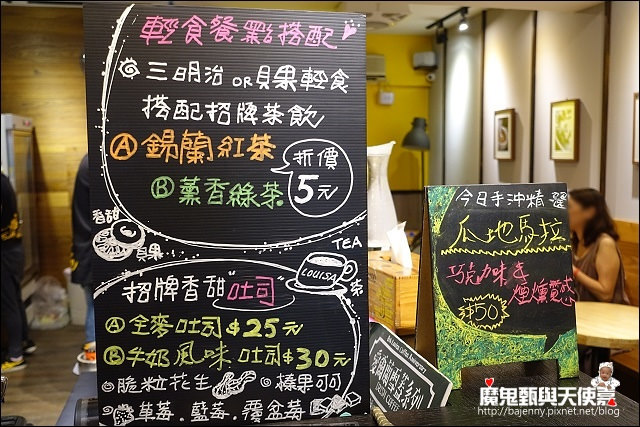 輕食餐點搭配
三明治 OR 貝果輕食
搭配招牌茶飲
Ⓐ錫蘭紅茶
Ⓑ薰香綠茶
折價
5元
香甜
貝果
TEA
LOUISA
茶
招牌香甜"吐司
Ⓐ全麥吐司$25元
Ⓑ牛奶風味吐司$30元
脆粒花生
榛果可可
草莓.藍莓.覆盆莓
今日手沖精選
瓜地馬拉
巧克力味&
煙燻質感
$150
魔鬼甄與天使嘉
http://bajenny.pixnet.net/blog